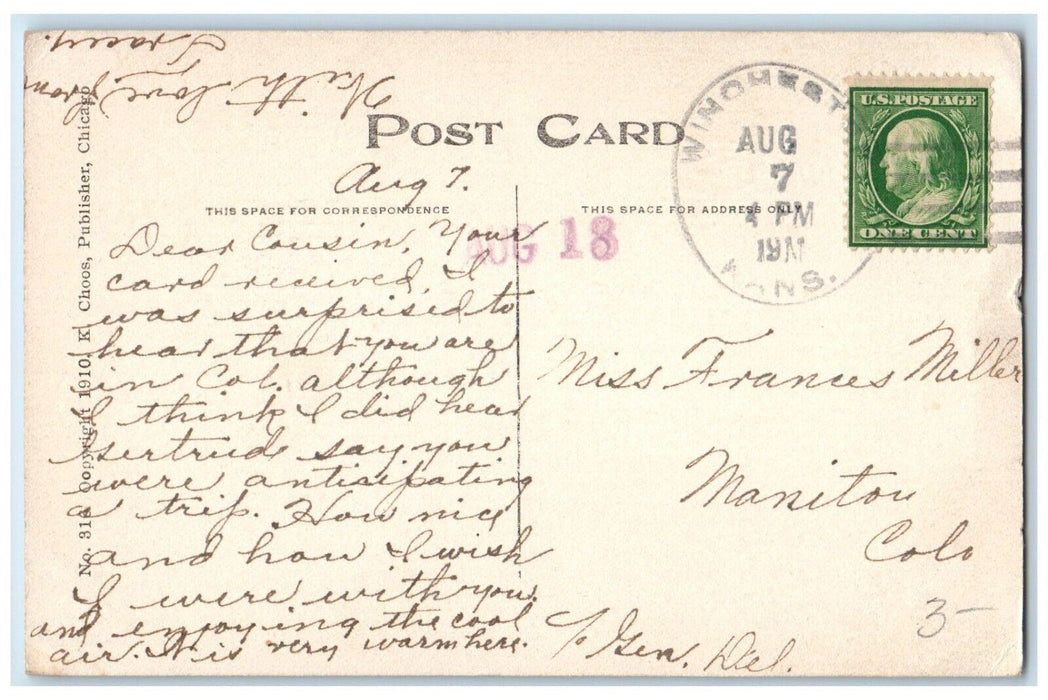 With love from
Tracey.
POST CARD
No. 318 Copyright 1910. K. Choos, Publisher, Chicago
THIS SPACE FOR CORRESPONDENCE
THIS SPACE FOR ADDRESS ONLY
WINCHESTER
AUG
7
4 PM
191
KANS.
U.S. POSTAGE
ONE CENT
AUG 18
Aug 7.
Dear Cousin, Your
card received, I
was surprised to
hear that you are
in Col. although
I think I did hear
Gertrude say you
were anticipating
a trip. How nice
and how I wish
I were with you
and enjoying the cool
air. It is very warm here.
Miss Frances Miller
Manitou
Colo
℅ Gen. Del.
3-